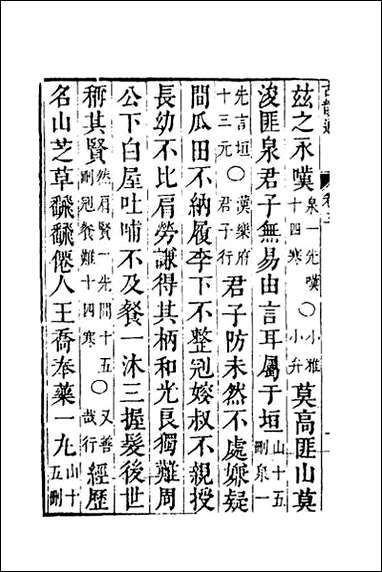 古韻通 卷三
茲之永嘆泉一先嘆十四寒○小雅小升莫高匪山莫
浚匪泉君子無易由言耳屬于垣山十五刪泉一
先言垣十三元○漢樂府君子行君子防未然不處嫌疑
間瓜田不納履李下不整冠嫂叔不親授
長幼不比肩勞謙得其柄和光良獨難周
公下白屋吐哺不及餐一沐三握髮後世
稱其賢然肩賢一先間十五刪冠餐難十四寒○又善哉行經歷
名山芝草飜飜僊人王喬奉藥一丸山十五刪